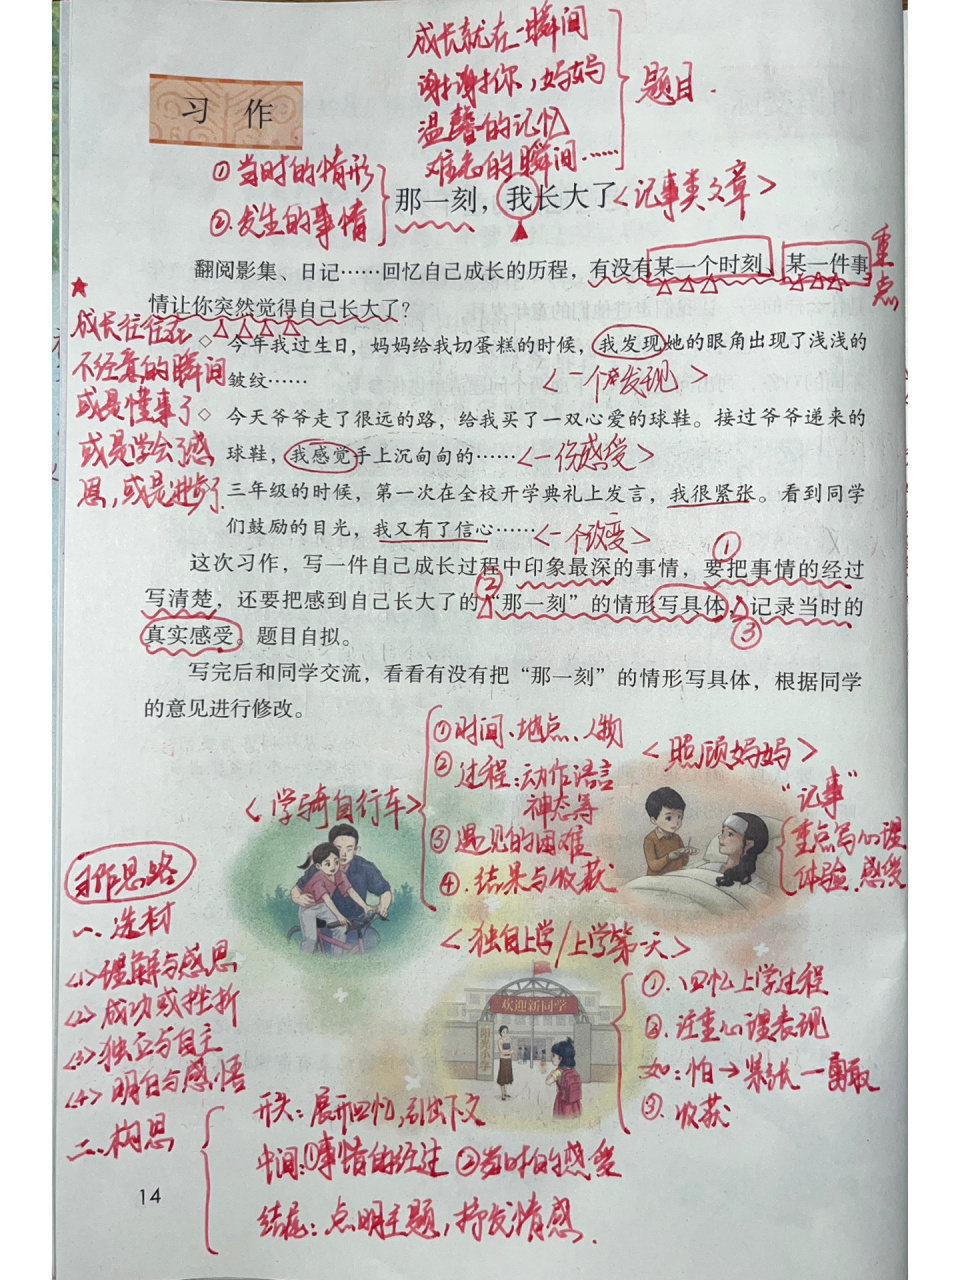 成长就在一瞬间
谢谢你，妈妈
温馨的记忆
难忘的瞬间……
题目.
习 作
①当时的情形
②.发生的事情
那一刻，我长大了
<记事类文章>
翻阅影集、日记……回忆自己成长的历程，有没有某一个时刻、某一件事
情让你突然觉得自己长大了？
重点
★
成长往往在
不经意的瞬间
或是懂事了
或是学会了感
恩，或是进步了.
◇ 今年我过生日，妈妈给我切蛋糕的时候，我发现她的眼角出现了浅浅的
皱纹……
<一个发现>
◇ 今天爷爷走了很远的路，给我买了一双心爱的球鞋。接过爷爷递来的
球鞋，我感觉手上沉甸甸的……
<一份感受>
三年级的时候，第一次在全校开学典礼上发言，我很紧张。看到同学
们鼓励的目光，我又有了信心……
<一个改变>
①
这次习作，写一件自己成长过程中印象最深的事情，要把事情的经过
②
写清楚，还要把感到自己长大了的“那一刻”的情形写具体，记录当时的
③
真实感受。题目自拟。
写完后和同学交流，看看有没有把“那一刻”的情形写具体，根据同学
的意见进行修改。
<学骑自行车>
①时间、地点、人物
②过程：动作语言
神态等
③遇见的困难
④.结果与收获
<照顾妈妈>
“记事”
重点写心理
体验、感受
<独自上学/上学第一天>
欢迎新同学
阳光小学
①.回忆上学过程
②.注重心理表现
如：怕→紧张—勇敢
③.收获
习作思路
一、选材
<1>理解与感恩
<2>成功或挫折
<3>独立与自主
<4>明白与感悟
二、构思
开头：展开回忆，引出下文
中间：①事情的经过 ②当时的感受
结尾：点明主题，抒发情感.
14